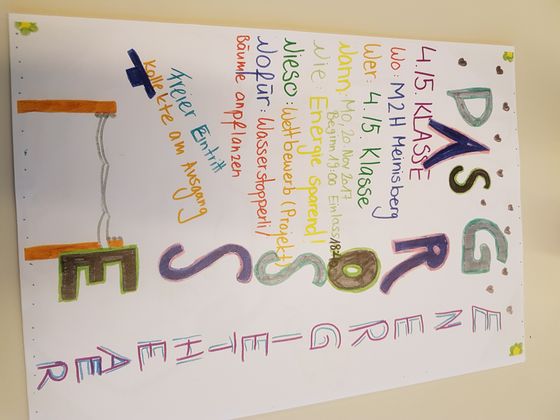 DAS
GROSSE
ENERGIETHEATER
4./5. KLASSE
Wo: M2H Meinisberg
Wer: 4./5 Klasse
Wann: Mo, 20 Nov 2017
Beginn 19:00 Einlass
Wie: Energie sparend!
Wieso: Wettbewerb (Projekt)
Wofür: Wasserstopperli/
Bäume anpflanzen
freier Eintritt
Kollekte am Ausgang